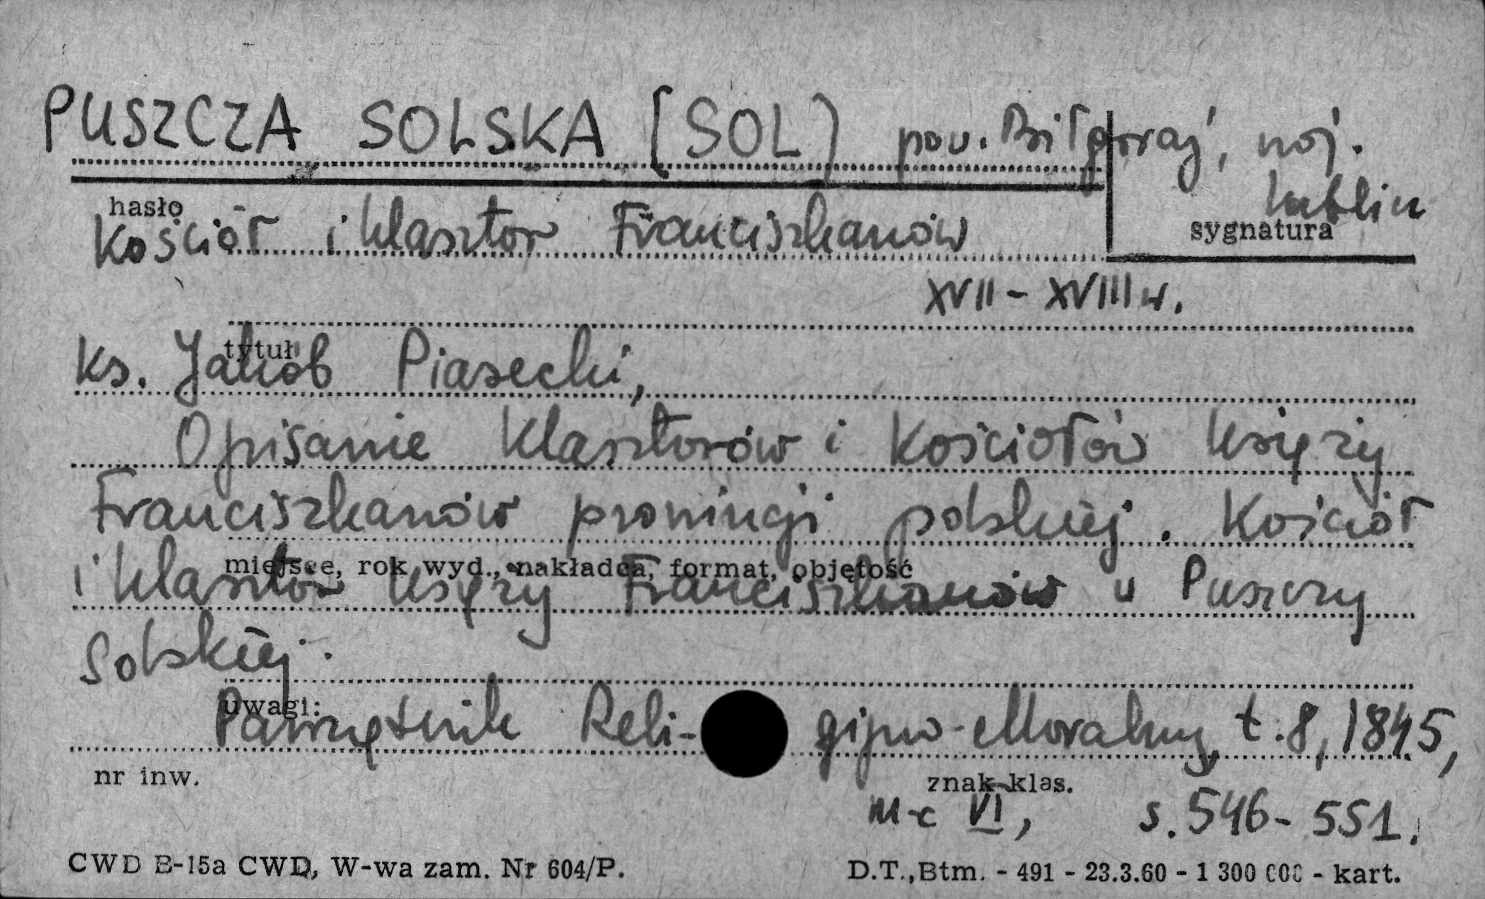 PUSZCZA SOLSKA (SOL) pow. Biłgoraj, woj.
Lublin
hasło
sygnatura
Kościół i klasztor Franciszkanów
XVII - XVIII w.
tytuł
Ks. Jakób Piasecki,
Opisanie klasztorów i kościołów księży
Franciszkanów prowincji polskiej. Kościół
miejsce, rok wyd., nakładca, format, objętość
i klasztor księży Franciszkanów w Puszczy
Solskiej.
uwagi:
Pamiętnik Reli- gijno-Moralny, t. 8, 1845,
nr inw.
znak klas.
m-c VI, s. 546-551.
CWD B-15a CWD, W-wa zam. Nr 604/P.
D.T.,Btm. - 491 - 23.3.60 - 1 300 000 - kart.